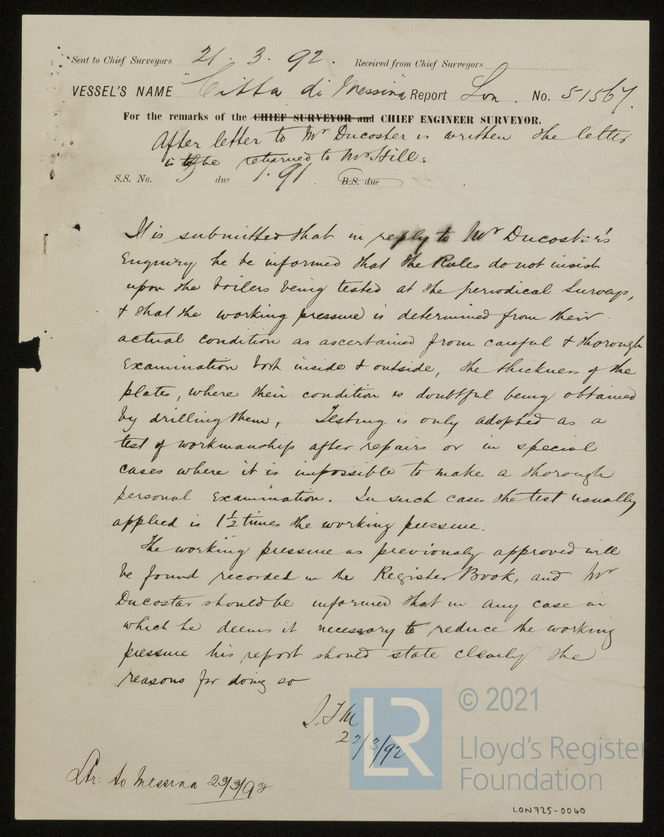 Sent to Chief Surveyors 21. 3. 92. Received from Chief Surveyors
VESSEL'S NAME "Citta di Messina Report Lon. No. 51567.
For the remarks of the CHIEF SURVEYOR and CHIEF ENGINEER SURVEYOR.
After letter to Mr Ducoster is written the letter
is to be returned to Mr Hill.
S.S. No. due 1.91. B.S. due
It is submitted that in reply to Mr Ducoster's
Enquiry he be informed that the Rules do not insist
upon the boilers being tested at the periodical Surveys,
& that the working pressure is determined from their
actual condition as ascertained from careful & thorough
Examination both inside & outside, the thickness of the
plates, where their condition is doubtful being obtained
by drilling them, Testing is only adopted as a
test of workmanship after repairs or in special
cases where it is impossible to make a thorough
personal Examination. In such cases the test usually
applied is 1½ times the working pressure.
The working pressure as previously approved will
be found recorded in the Register Book, and Mr
Ducoster should be informed that in any case in
which he deems it necessary to reduce the working
pressure his report should state clearly the
reasons for doing so
22/3/92
Ltr. to Messina 23/3/92
LR © 2021
Lloyd's Register
Foundation
LON925-0040